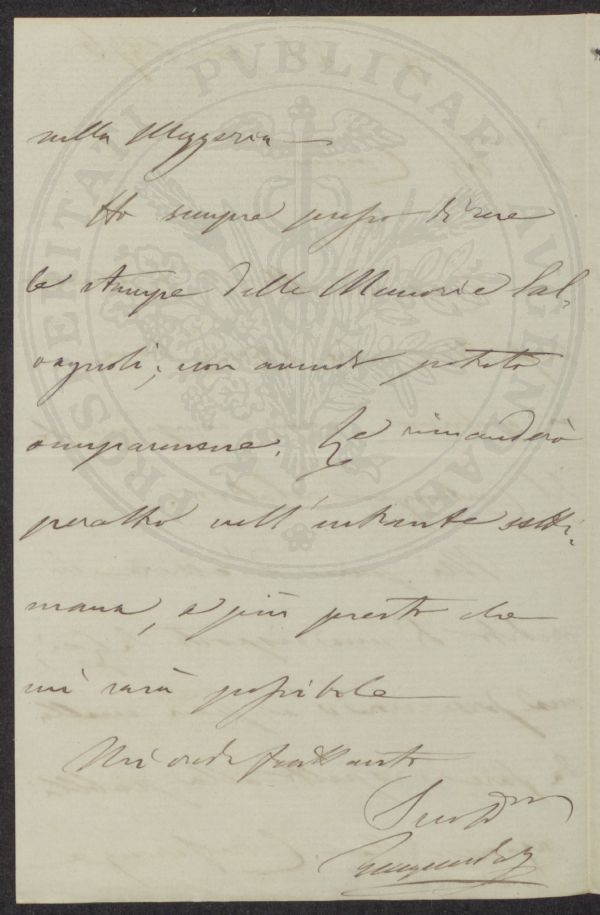 PROSPERITATI PVBLICAE AVGENDAE
nella Mezzeria —
Ho sempre presso di me
le stampe delle Memorie Sal-
vagnoli; non avendo potuto
occuparmene. Le rimanderò
peraltro nell'entrante setti-
mana, e più presto che
mi sarà possibile
Mi creda frattanto
Suo